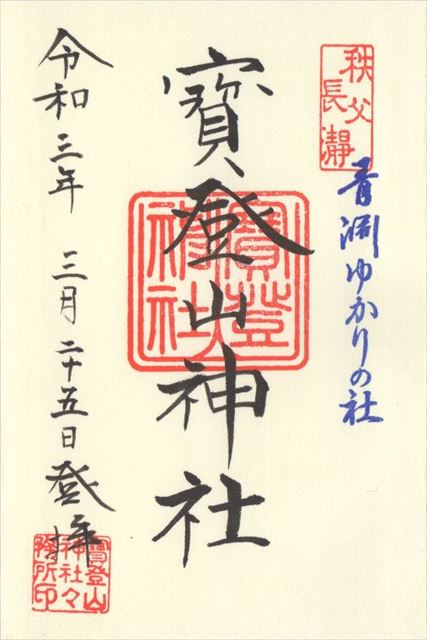 秩父
長瀞
青淵ゆかりの社
寶登山神社
寶登山
神社
令和三年 三月二十五日登拝
寶登山
神社々
務所印